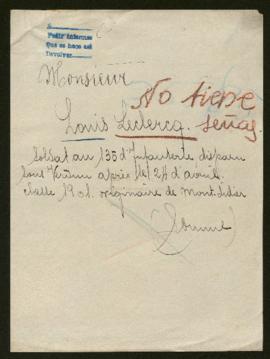 Pedir informes
que se hace así
devolver
Monsieur
No tiene
señas
Louis Leclercq.
Soldat au 135 d'Infanterie disparu
sous Verdun après le 24 d'avril.
classe 1901. originaire de Montdidier
(Somme)